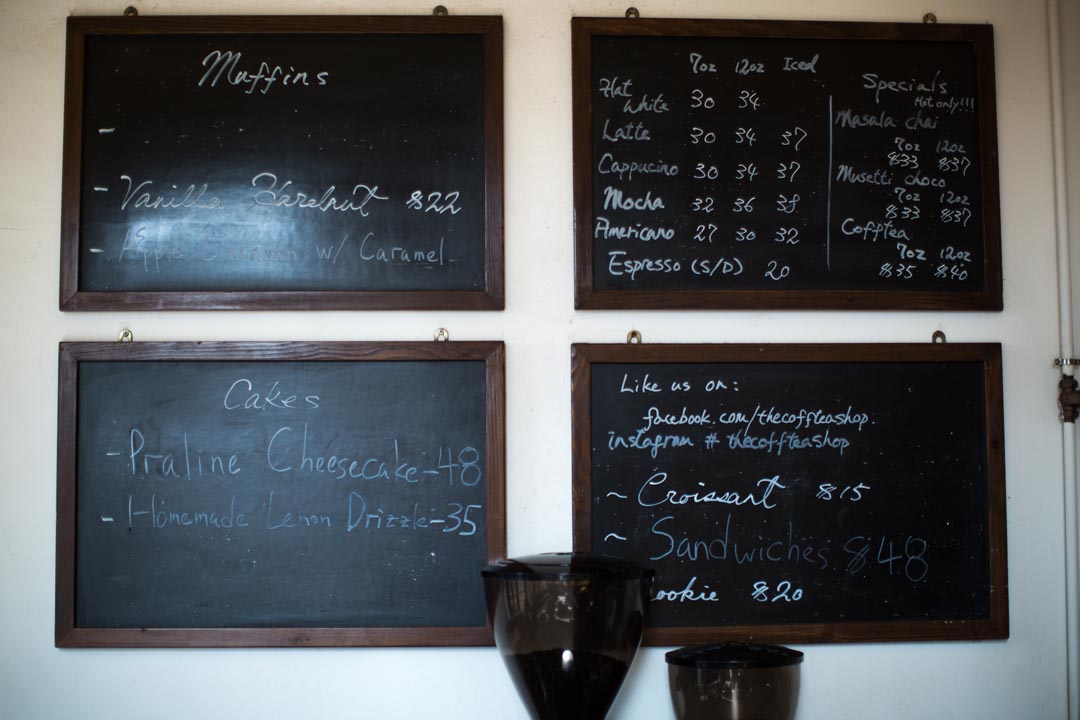 Muffins
-
- Vanilla Hazelnut $22
- Apple Cinnamon w/ Caramel
7oz 12oz Iced
Flat White 30 34
Latte 30 34 37
Cappucino 30 34 37
Mocha 32 36 38
Americano 27 30 32
Espresso (S/D) 20
Specials
Hot only!!!
Masala chai
7oz 12oz
$33 $37
Musetti choco
7oz 12oz
$33 $37
Cofftea
7oz 12oz
$35 $40
Cakes
- Praline Cheesecake - 48
- Homemade Lemon Drizzle - 35
Like us on:
facebook.com/thecoffteashop.
instagram # thecoffteashop
~ Croissant $15
~ Sandwiches $48
ookie $20